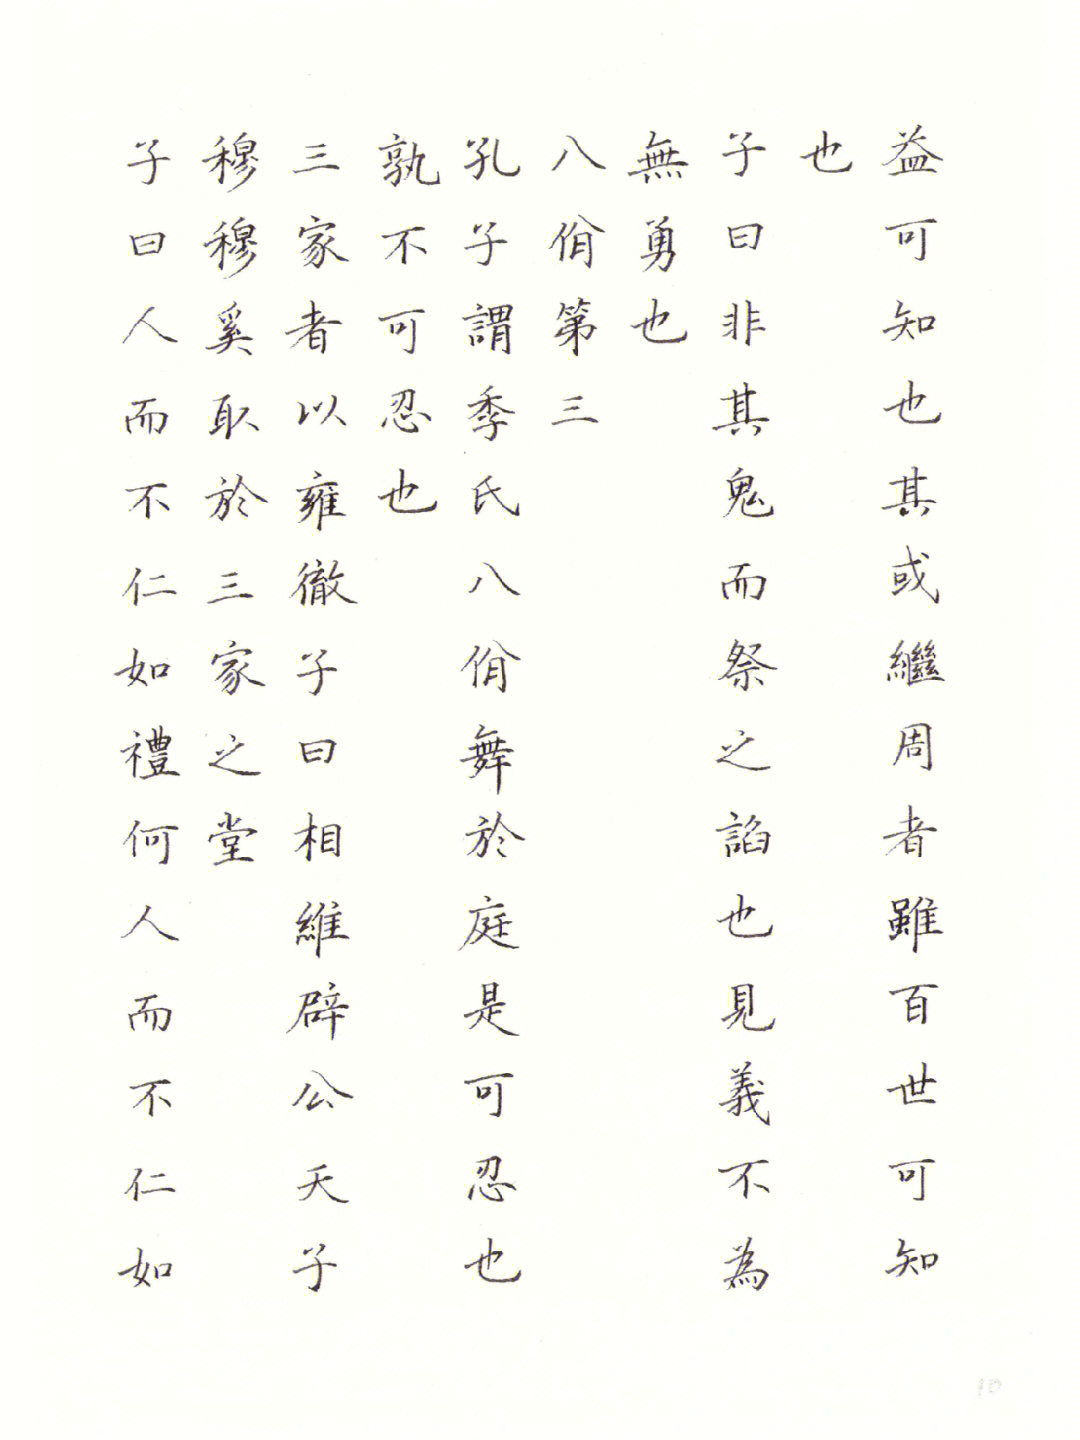 益可知也其或繼周者雖百世可知
也
子曰非其鬼而祭之諂也見義不為
無勇也
八佾第三
孔子謂季氏八佾舞於庭是可忍也
孰不可忍也
三家者以雍徹子曰相維辟公天子
穆穆奚取於三家之堂
子曰人而不仁如禮何人而不仁如
10